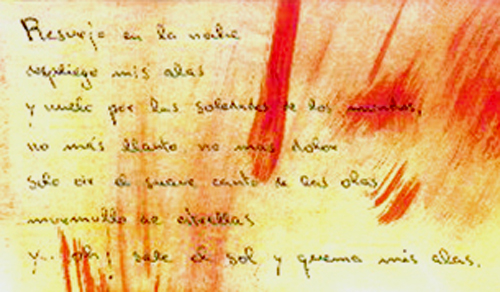 Resurjo en la noche
despliego mis alas
y vuelo por las soledades de los mundos,
no más llanto no más dolor
solo oir el suave canto de las olas
murmullo de estrellas
y... oh! sale el sol y quema mis alas.